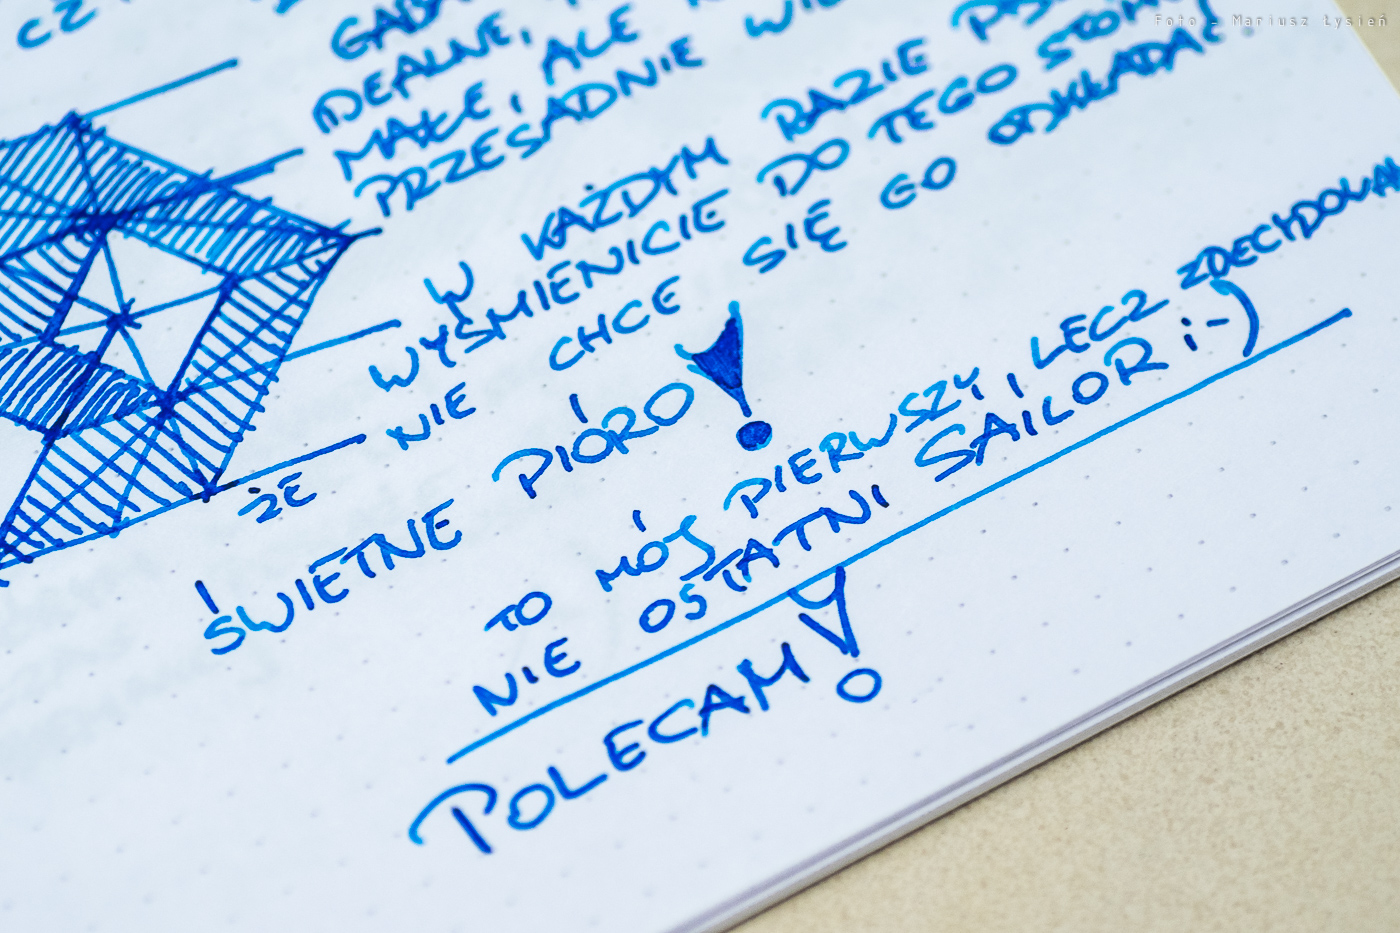 Foto - Mariusz Łysień
IDEALNE,
MAŁE, ALE
PRZESADNIE
W KAŻDYM RAZIE
WYŚMIENICIE DO TEGO
NIE CHCE SIĘ GO ODKŁADAĆ.
ŻE
ŚWIETNE PIÓRO!
TO MÓJ PIERWSZY, LECZ
NIE OSTATNI SAILOR ;-)
POLECAM!